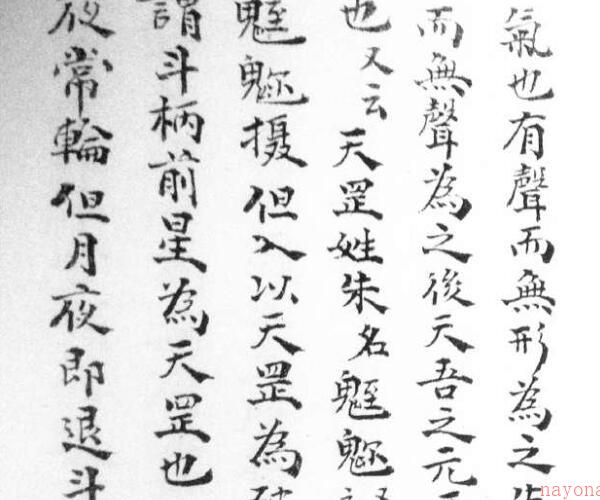 氣也有聲而無形為之先
而無聲為之後天吾之元
也又云天罡姓朱名魓魀
魓魀摄但入以天罡為破
謂斗柄前星為天罡也
夜常輪但月夜即退斗
nayona